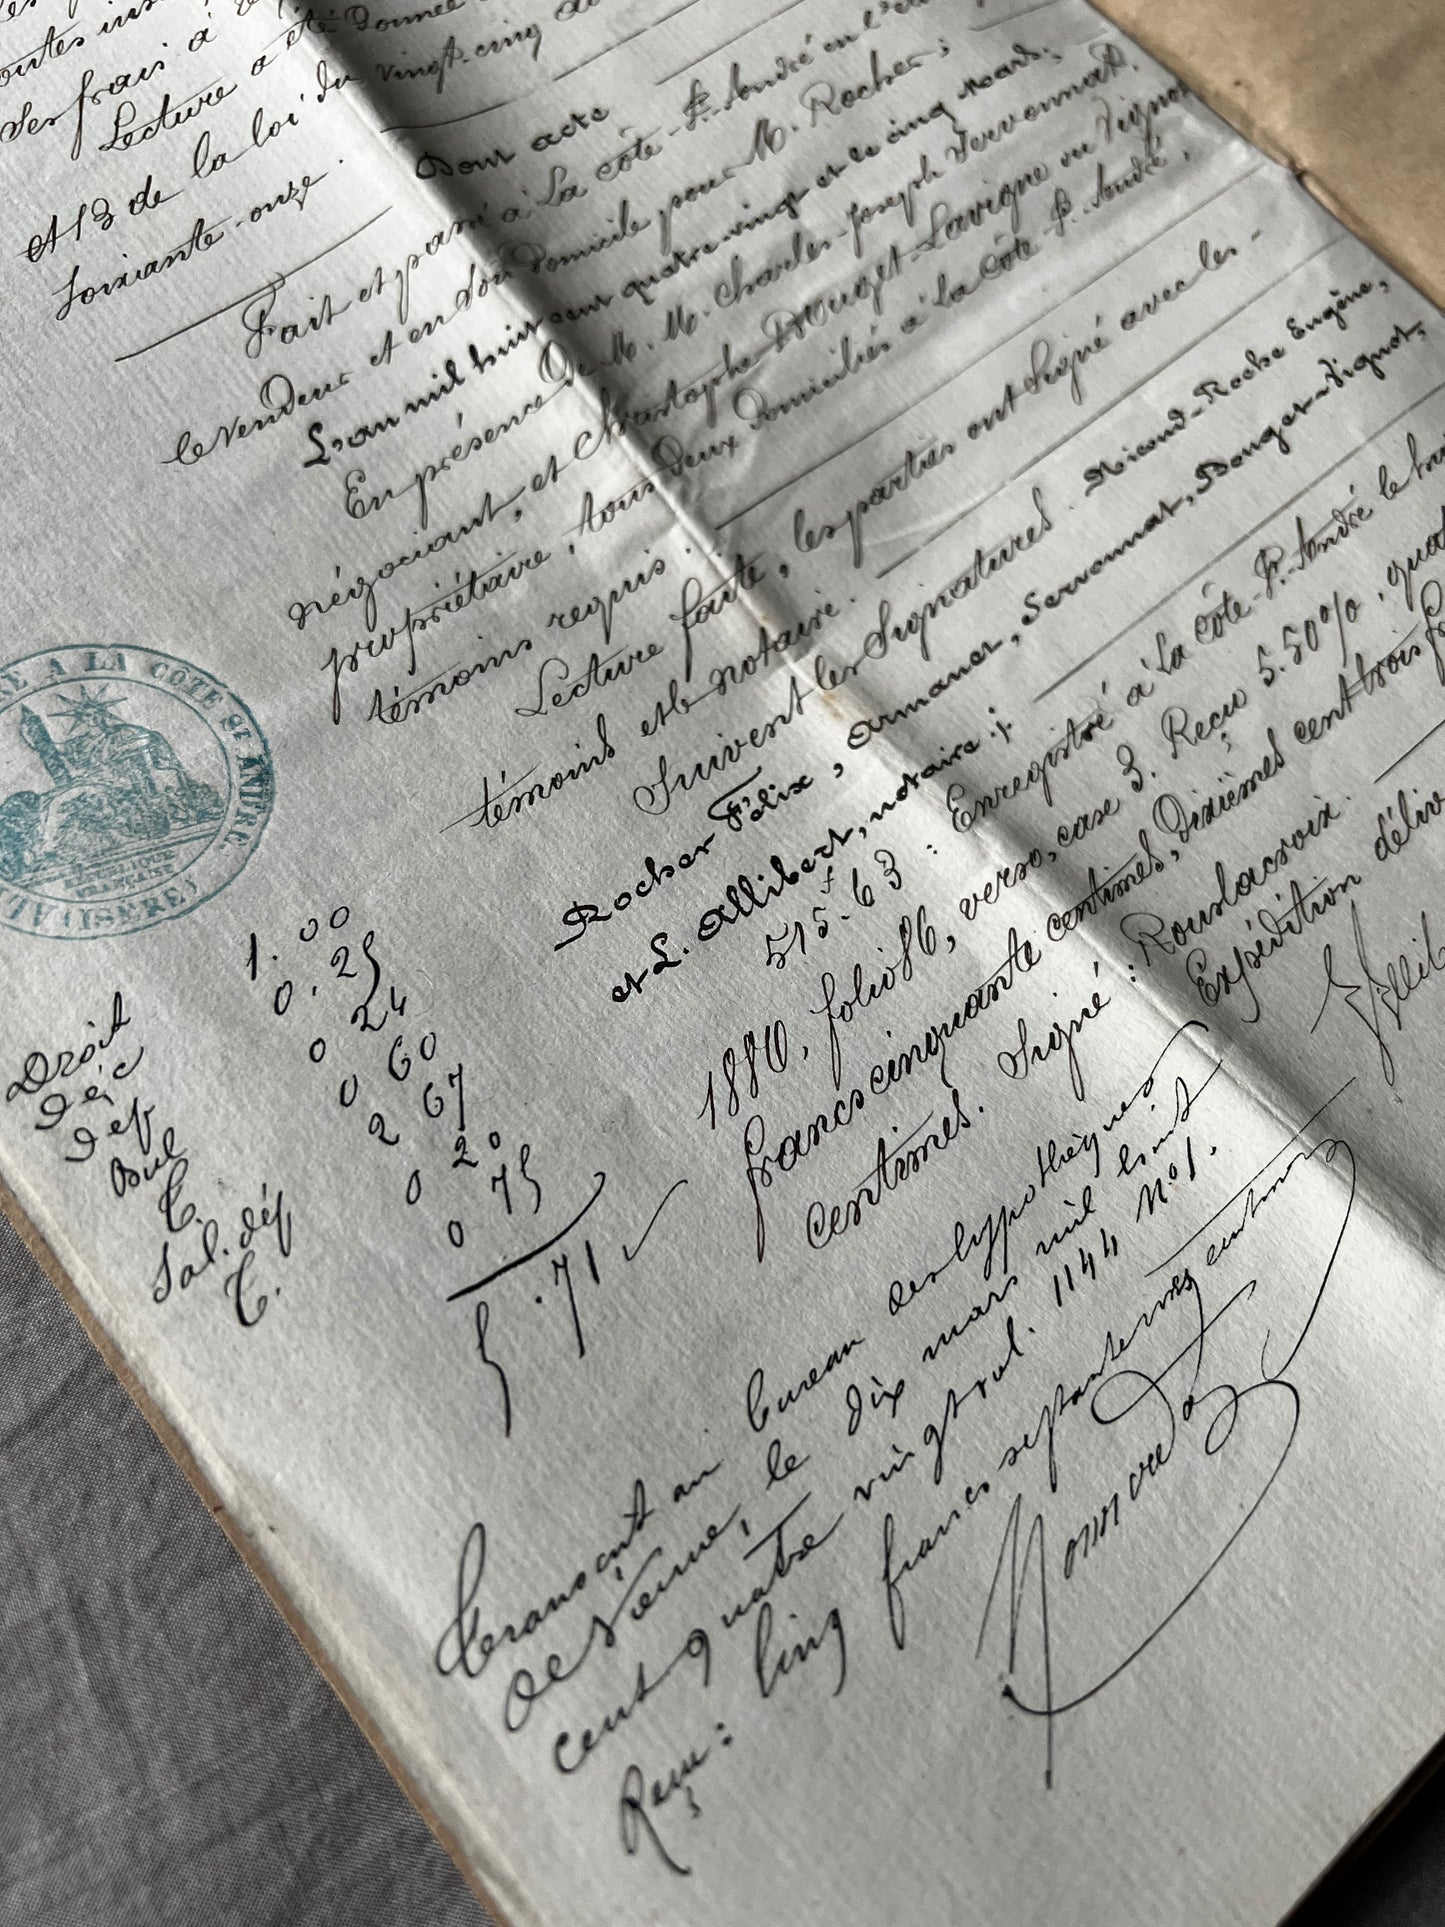 toutes ins
ses frais à
Lecture a été donnée
et 13 de la loi du vingt-cinq
soixante-onze.
Dont acte
Fait et passé à La côte-St-André en l'étu
le vendeur et en son domicile pour M. Rocher;
L'an mil huit cent quatre vingt et le cinq Mars;
En présence de M. M. Charles-Joseph Servonnat,
négociant, et Christophe Douget-Lavigne ou Vignot
propriétaire, tous deux domiciliés à La côte St-André,
témoins requis.
Lecture faite, les parties ont signé avec les
témoins et le notaire.
Suivent les signatures. Micoud-Roche Eugène,
Rocher Félix, Armanet, Servonnat, Douget-Vignot,
et L. Allibert, notaire :/.
515 f-63 : Enregistré à La côte-St-André le
1880, folio 86, verso, case 3. Reçu 5.50%.
francs cinquante centimes, Dixièmes cent trois
centimes. Signé : Rouslacroix.
Expédition délivr
Allib
RE A LA CÔTE ST ANDRÉ.
RÉPUBLIQUE
FRANÇAISE
(ISÈRE)
Droit 1.00
Déc 0.25
Def 0 24
Bul 0 60
T. 2 67
Sal. dép 0 20
T. 0 75
5.71
Transcrit au bureau des hypothèques
de Vienne, le dix mars mil huit
cent quatre vingt vol. 1144 No 1.
Reçu : Cinq francs septante un centimes